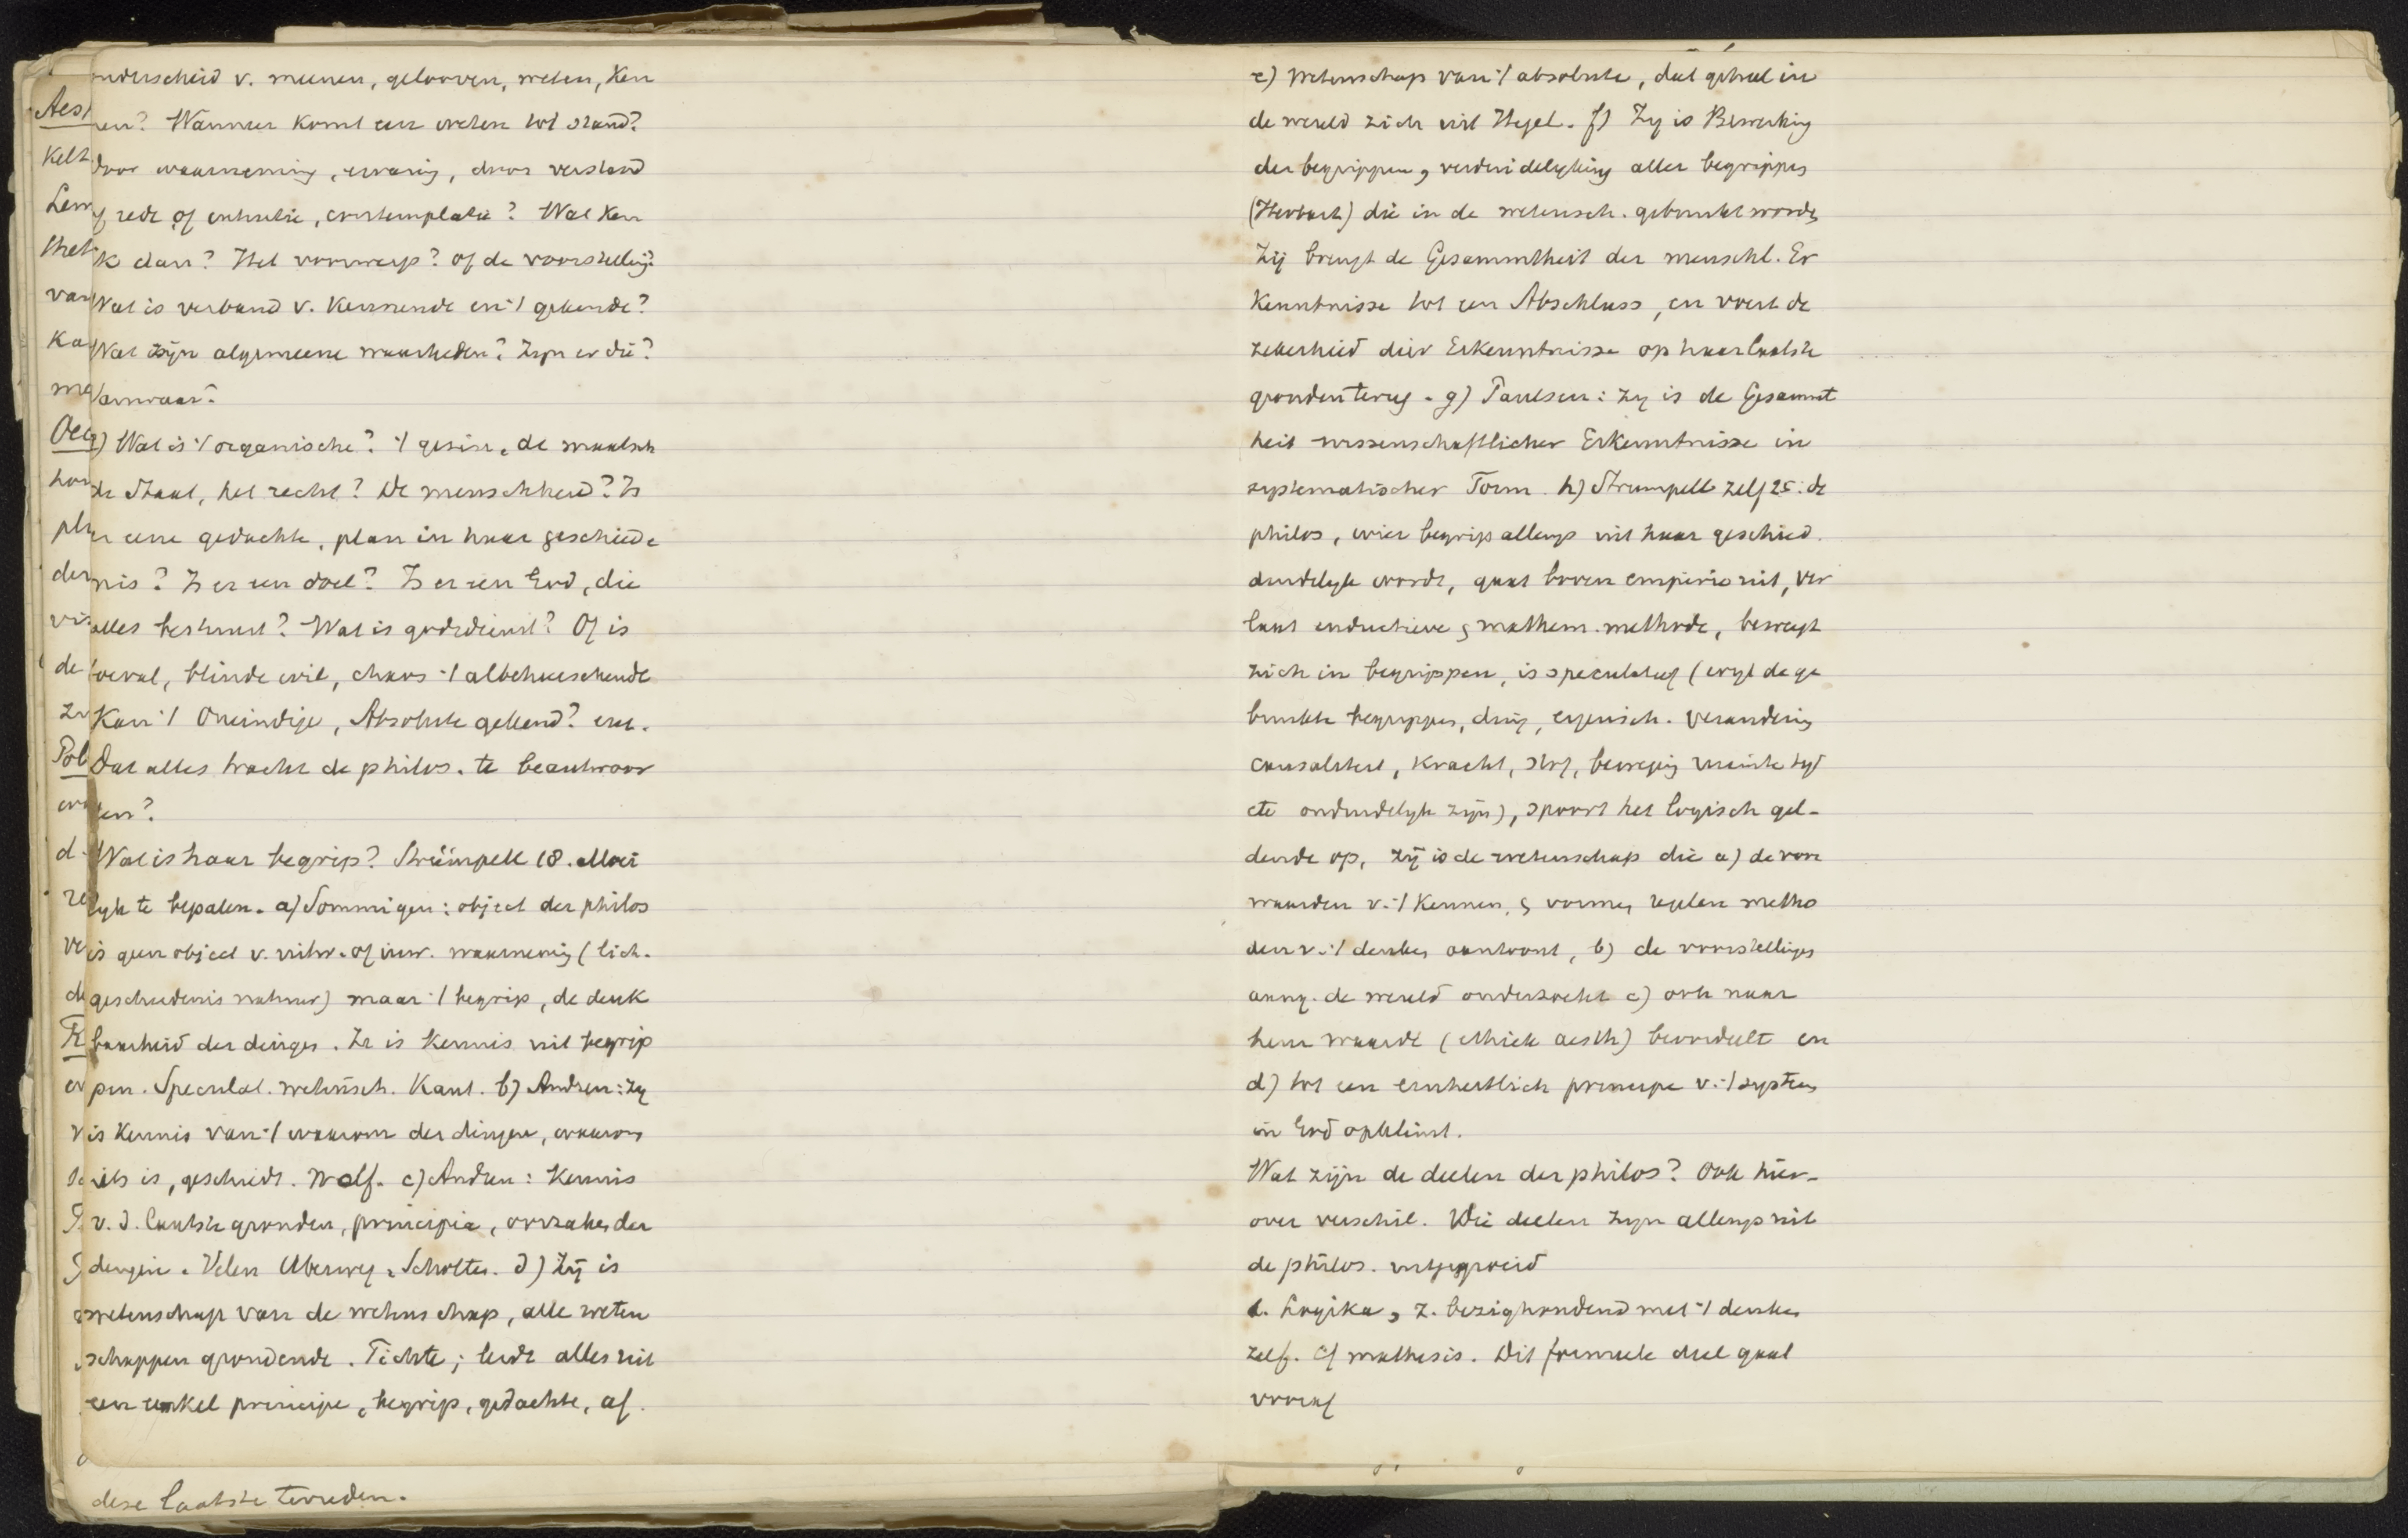 onderscheid v. meenen, gelooven, weten, ken
nen? Wanneer komt een weten tot stand?
door waarneming, ervaring, door verstand
of rede of intuitie, contemplatie? Wat ken
ik dan? Het voorwerp? of de voorstelling?
Wat is verband v. kennende en 't gekende?
Wat zijn algemeene waarheden? Zijn er die?
Vanwaar?
) Wat is 't organische? 't gezin, de maatsch
de Staat, het recht? De menschheid? Is
er eene gedachte, plan in haar geschiede
nis? Is er een doel? Is er een God, die
alles bestuurt? Wat is godsdienst? Of is
toeval, blinde wil, chaos 't albeheerschende
Kan 't Oneindige, Absolute gekend? enz.
Dat alles tracht de philos. te beantwoor
den?
Wat is haar begrip? Strümpell 18. Moei
lyk te bepalen. a) Sommigen: object der philos
is geen object v. uitw. of inw. waarneming (lich.
geschiedenis natuur) maar 't begrip, de denk
baarheid der dingen. Ze is kennis uit begrip
pen. Speculat. wetensch. Kant. b) Andren: zy
is kennis van 't waarom der dingen, waarom
iets is, geschiedt. Wolf. c) Andren: kennis
v. d. laatste gronden, principia, oorzaken der
dingen. Velen Uberweg, Scholten. d) Zij is
wetenschap van de wetenschap, alle weten
schappen grondende. Fichte; leidt alles uit
een enkel principe, begrip, gedachte, af.
deze laatste terreden.
Aes
Kelt
Lem
thet
van
Ka
me
Oec
hou
der
de
Pol
d.
e) wetenschap van 't absolute, dat geheel in
de wereld zich uit Hegel. f) Zy is Bewerking
der begrippen, verduidelyking aller begrippen
(Herbart) die in de wetensch. gebruikt worden
Zij brengt de Gesammtheit der menschl. Er
kenntnisse tot een Abschluss, en voert de
zekerheid dier Erkenntnisse op haar laatste
gronden terug. g) Paulsen: zy is de Gesammt
heit wissenschaftlicher Erkenntnisse in
systematischer Form. h) Strumpell zelf 25: de
philos, wier begrip allengs uit haar geschied.
duidelyk wordt, gaat boven empirie uit, ver
laat inductieve & mathem. methode, beweegt
zich in begrippen, is speculatief (wyl de ge
bruikte begrippen, ding, eigensch. verandering
causaliteit, kracht, stof, beweging ruimte tyd
etc onduidelyk zijn), spoort het logisch gel-
dende op, zij is de wetenschap die a) de voor
waarden v. 't kennen, & vormen regelen metho
den v. 't denken aantoont, b) de voorstellingen
aang. de wereld onderzoekt c) ook naar
hun waarde (ethiek aesth) beoordeelt en
d) tot een einheitlich principe v. 't systeem
in God opklimt.
Wat zijn de deelen der philos? Ook hier-
over verschil. Die deelen zyn allengs uit
de philos. uitgegroeid
1. Logika, z. bezighoudend met 't denken
zelf. Cf mathesis. Dit formeele deel gaat
vooraf